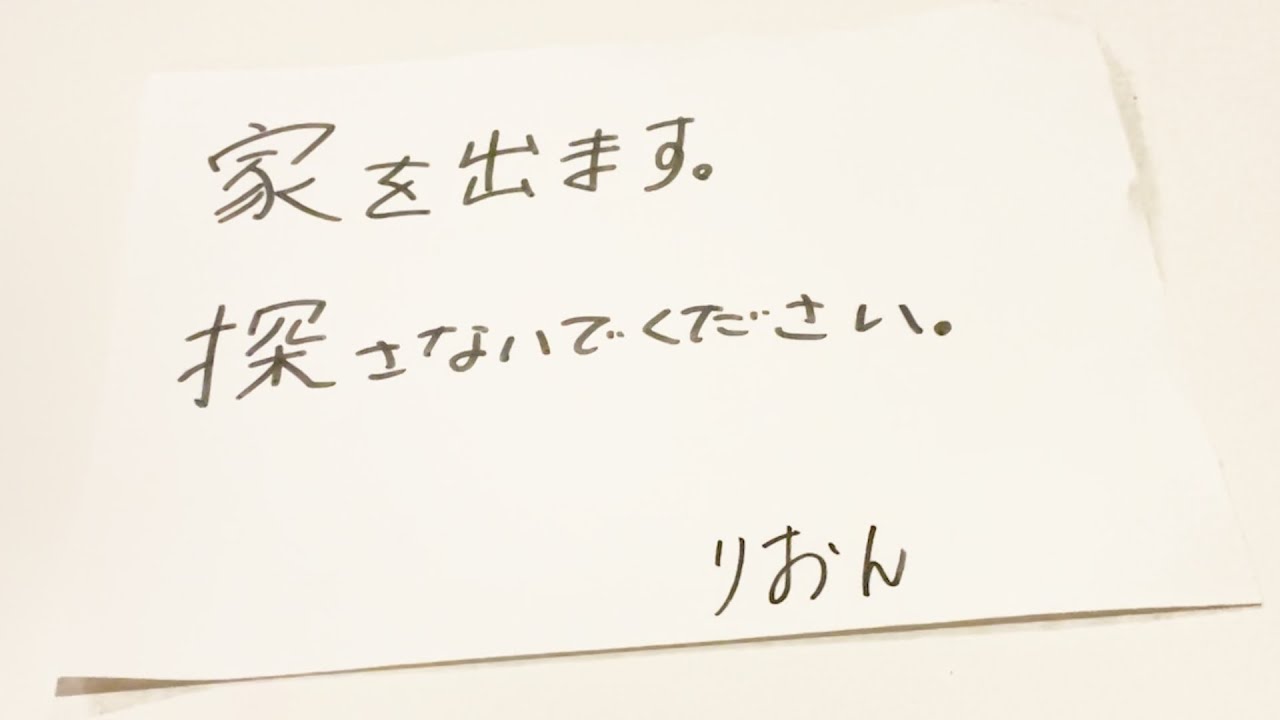 家を出ます。
探さないでください。
りおん